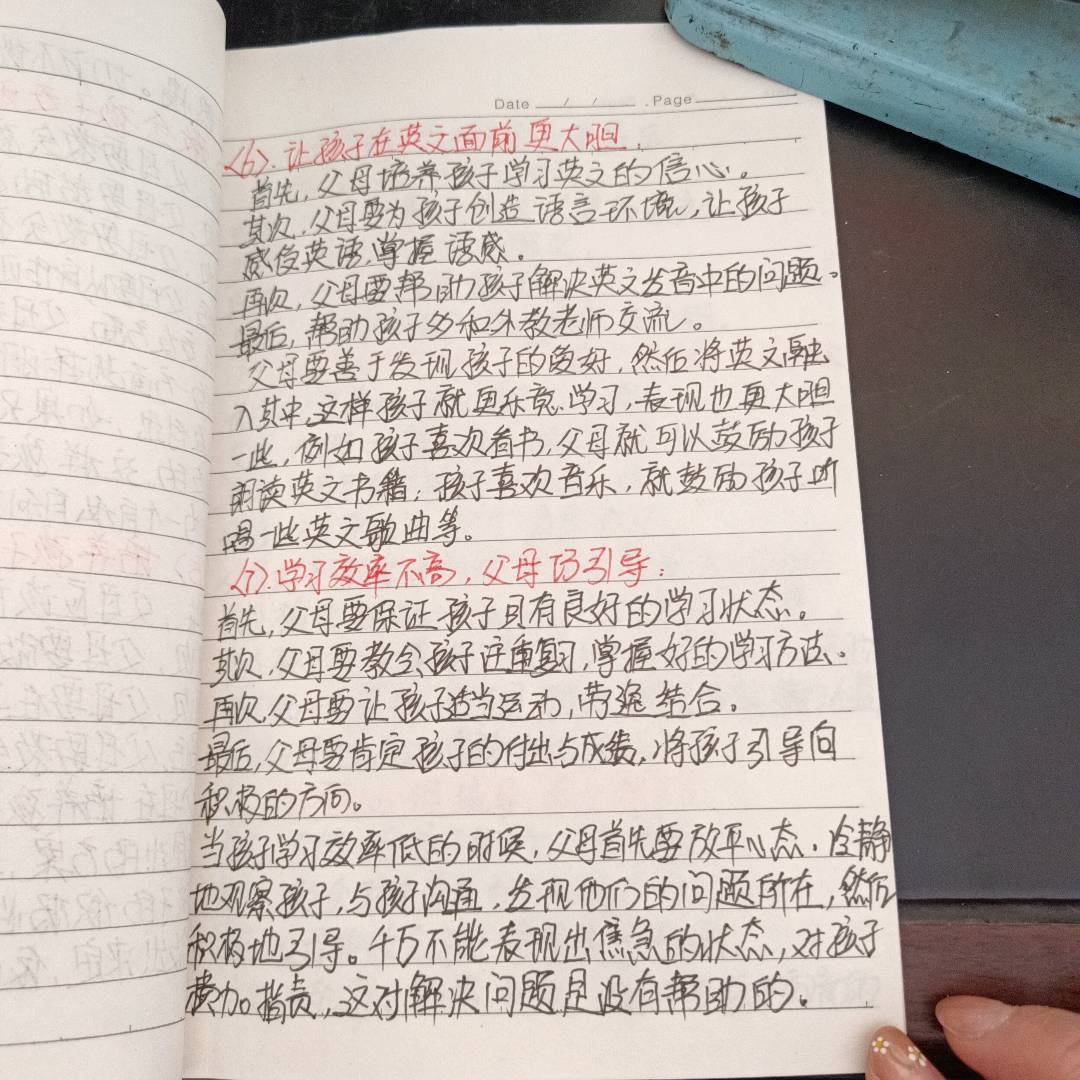 Date / / . Page
<6>. 让孩子在英文面前更大胆.
首先, 父母培养孩子学习英文的信心。
其次, 父母要为孩子创造语言环境, 让孩子
感受英语, 掌握语感。
再次, 父母要帮助孩子解决英文发音中的问题。
最后, 帮助孩子多和外教老师交流。
父母要善于发现孩子的爱好, 然后将英文融
入其中, 这样孩子就更乐意学习, 表现也更大胆
一些, 例如孩子喜欢看书, 父母就可以鼓励孩子
朗读英文书籍; 孩子喜欢音乐, 就鼓励孩子听
唱一些英文歌曲等。
<7>. 学习效率不高, 父母巧引导:
首先, 父母要保证孩子具有良好的学习状态。
其次, 父母要教会孩子注重复习, 掌握好的学习方法。
再次, 父母要让孩子适当运动, 劳逸结合。
最后, 父母要肯定孩子的付出与成绩, 将孩子引导向
积极的方向。
当孩子学习效率低的时候, 父母首先要放平心态, 冷静
地观察孩子, 与孩子沟通, 发现他们的问题所在, 然后
积极地引导。千万不能表现出焦急的状态, 对孩子
横加指责, 这对解决问题是没有帮助的。